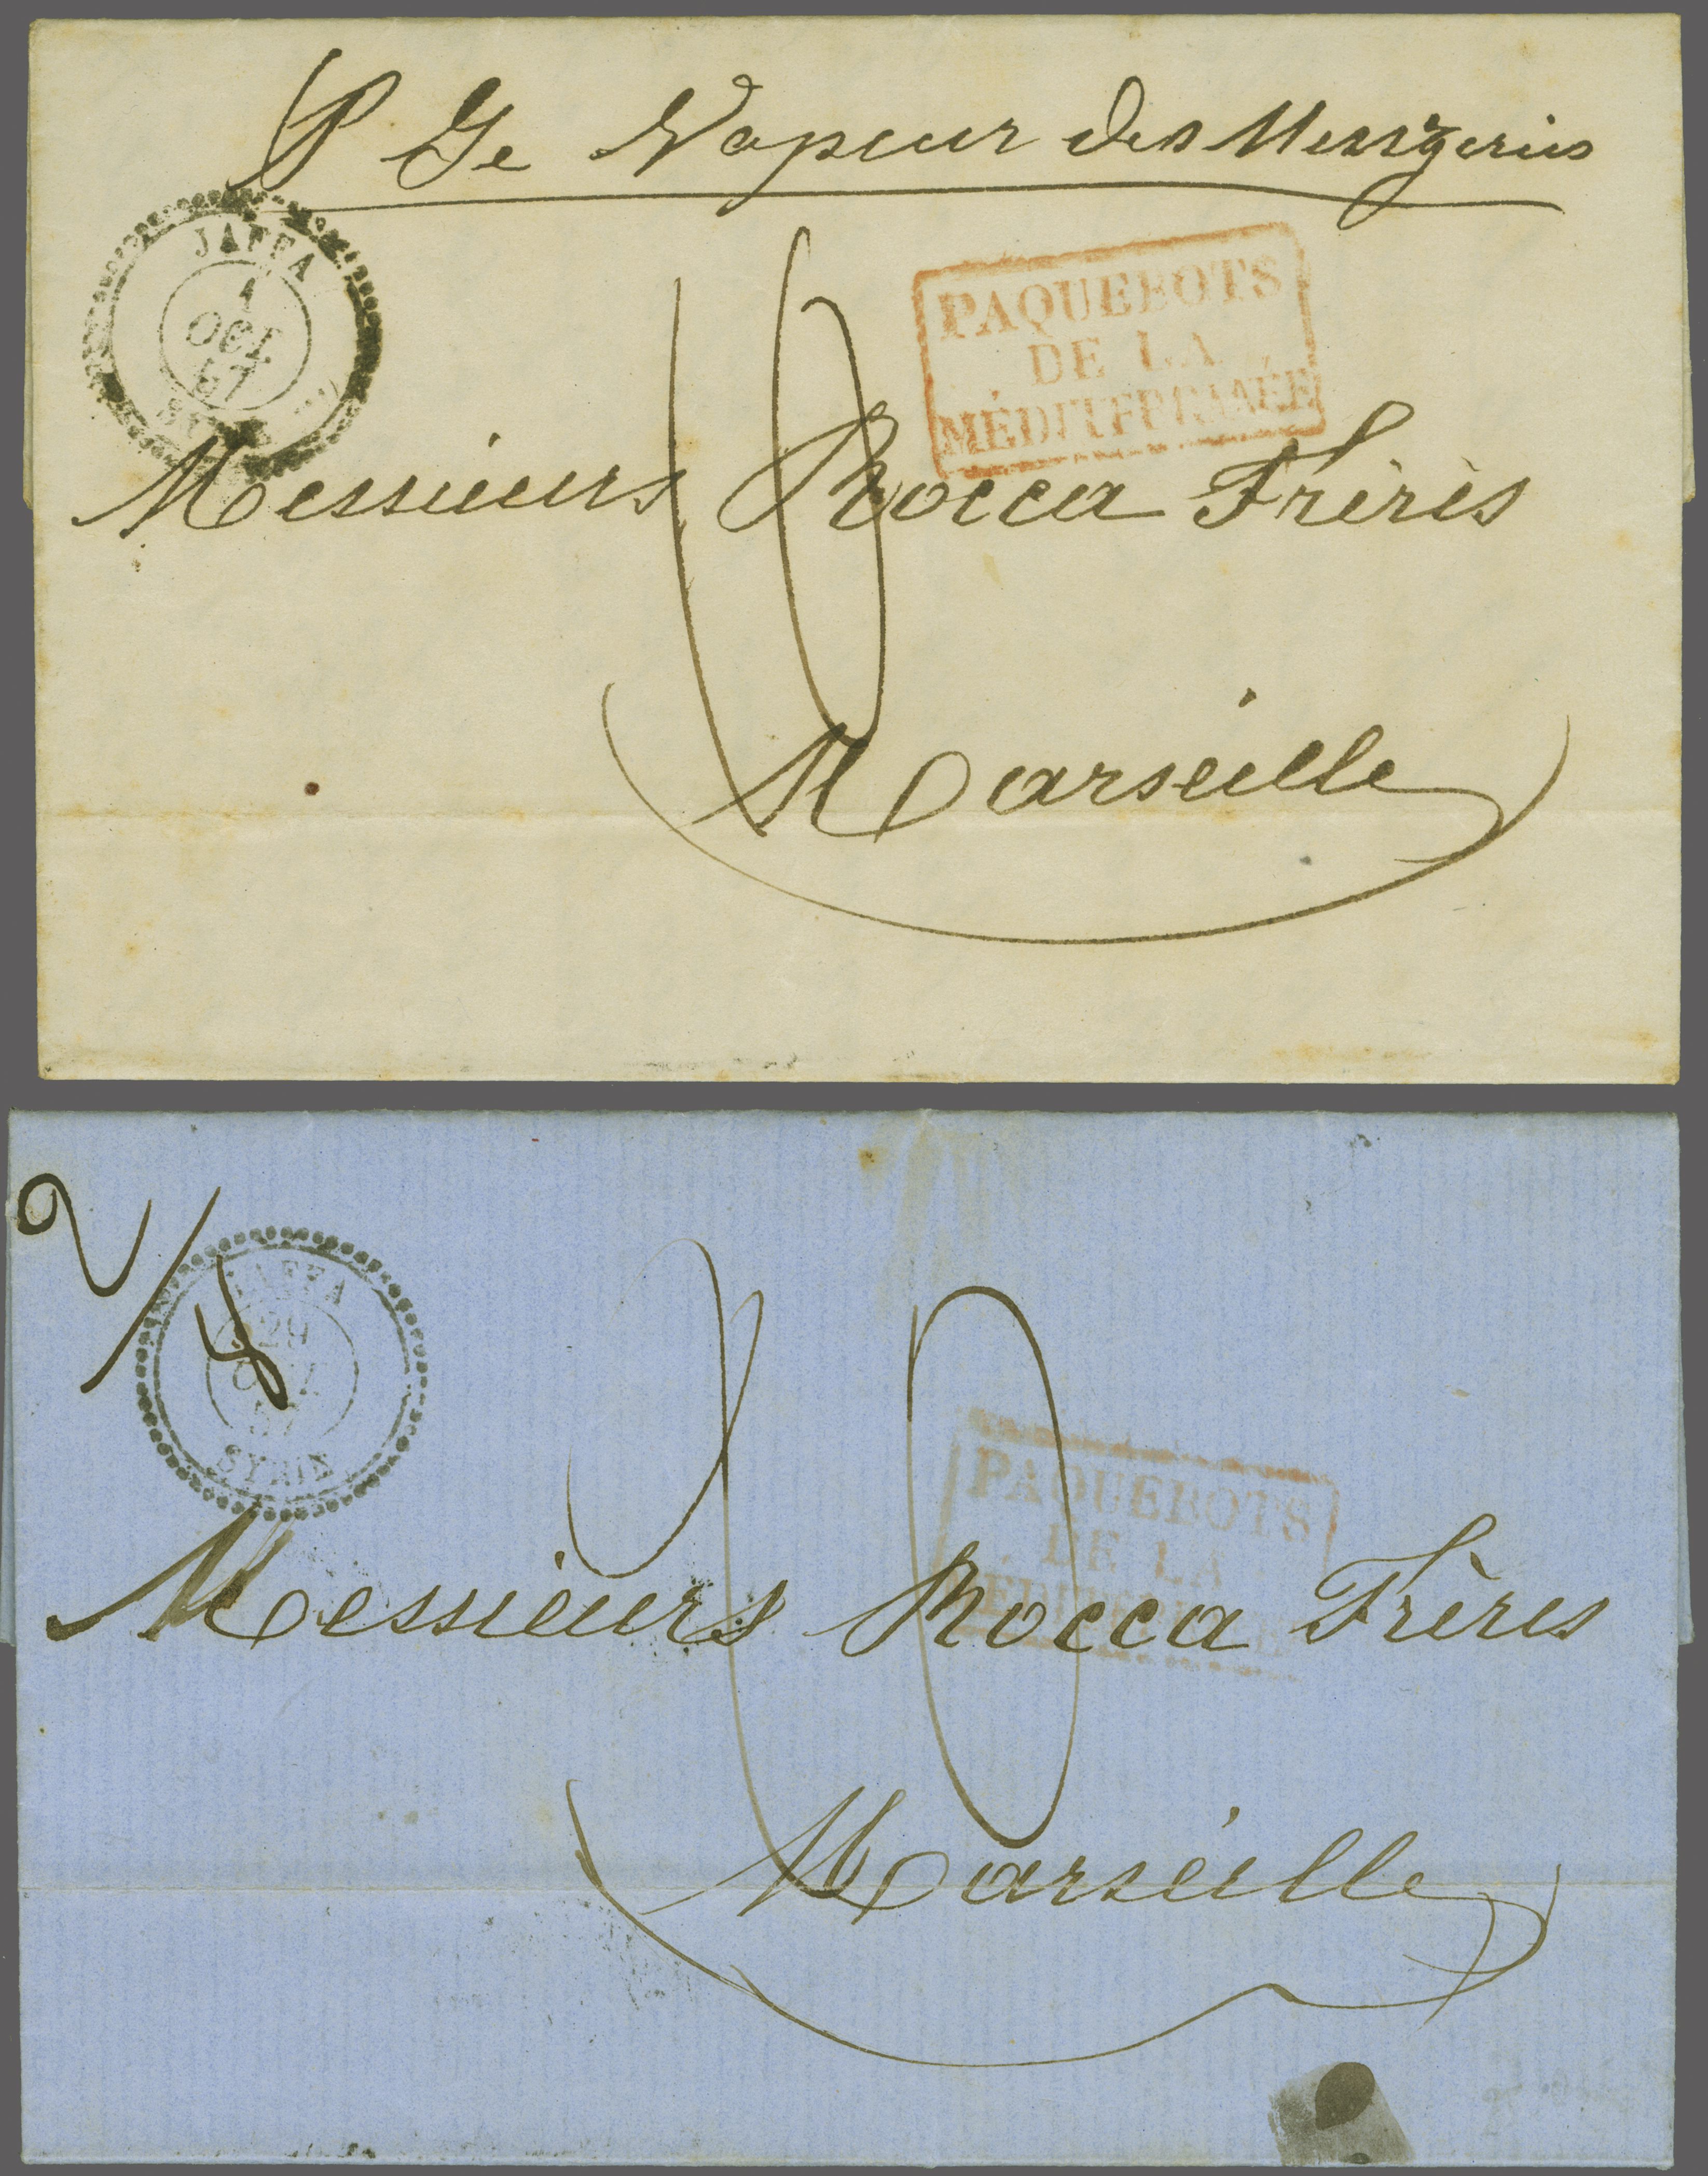 P Ge Vapeur des Messageries
JAFFA
1
OCT
57
SYRIE
PAQUEBOTS
DE LA
MÉDITERRANÉE
10
Messieurs Rocca Frères
Marseille
2/
JAFFA
29
57
SYRIE
PAQUEBOTS
DE LA
MÉDITERRANÉE
20
Messieurs Rocca Frères
Marseille